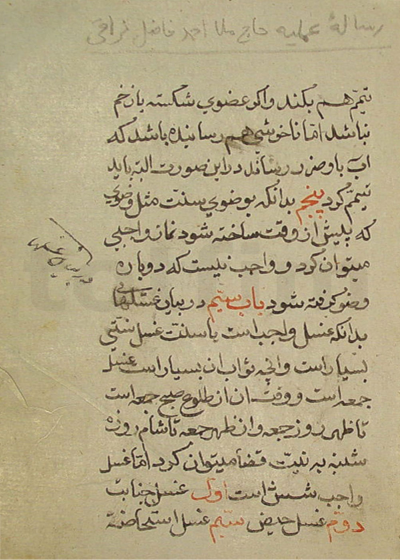 رسالهٔ عملیه حاج ملا احمد فاضل نراقی
تیمّم هم بکند و اگر عضوی شکسته یا زخم
نباشد امّا ناخوشی هم رسانیده باشد که
آب باو ضرر رساند در این صورت البته باید
تیمّم کرد پنجم بدانکه بوضوی سنت مثل وضوی
که پیش از وقت ساخته شود نماز واجبی
میتوان کرد و واجب نیست که دوباره
وضو گرفته شود باب سیّم در بیان غسلها
در بیان غسلها
بدانکه غسل واجب است یا سنّت غسل سنّتی
بسیار است و آنچه ثواب آن بسیار است غسل
جمعه است و وقت آن از طلوع صبح جمعه است
تا ظهر روز جمعه و از ظهر جمعه تا شام روزه
شنبه به نیّت قضا میتوان کرد امّا غسل
واجب شش است اول غسل جنابت
دوّم غسل حیض سیّم غسل استحاضة